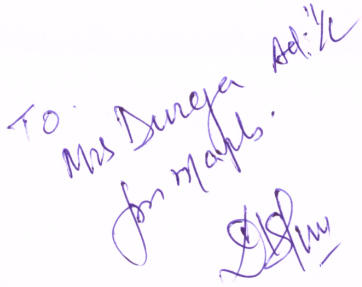 TO.
Mrs Dureja Ad: I/C
for maths.